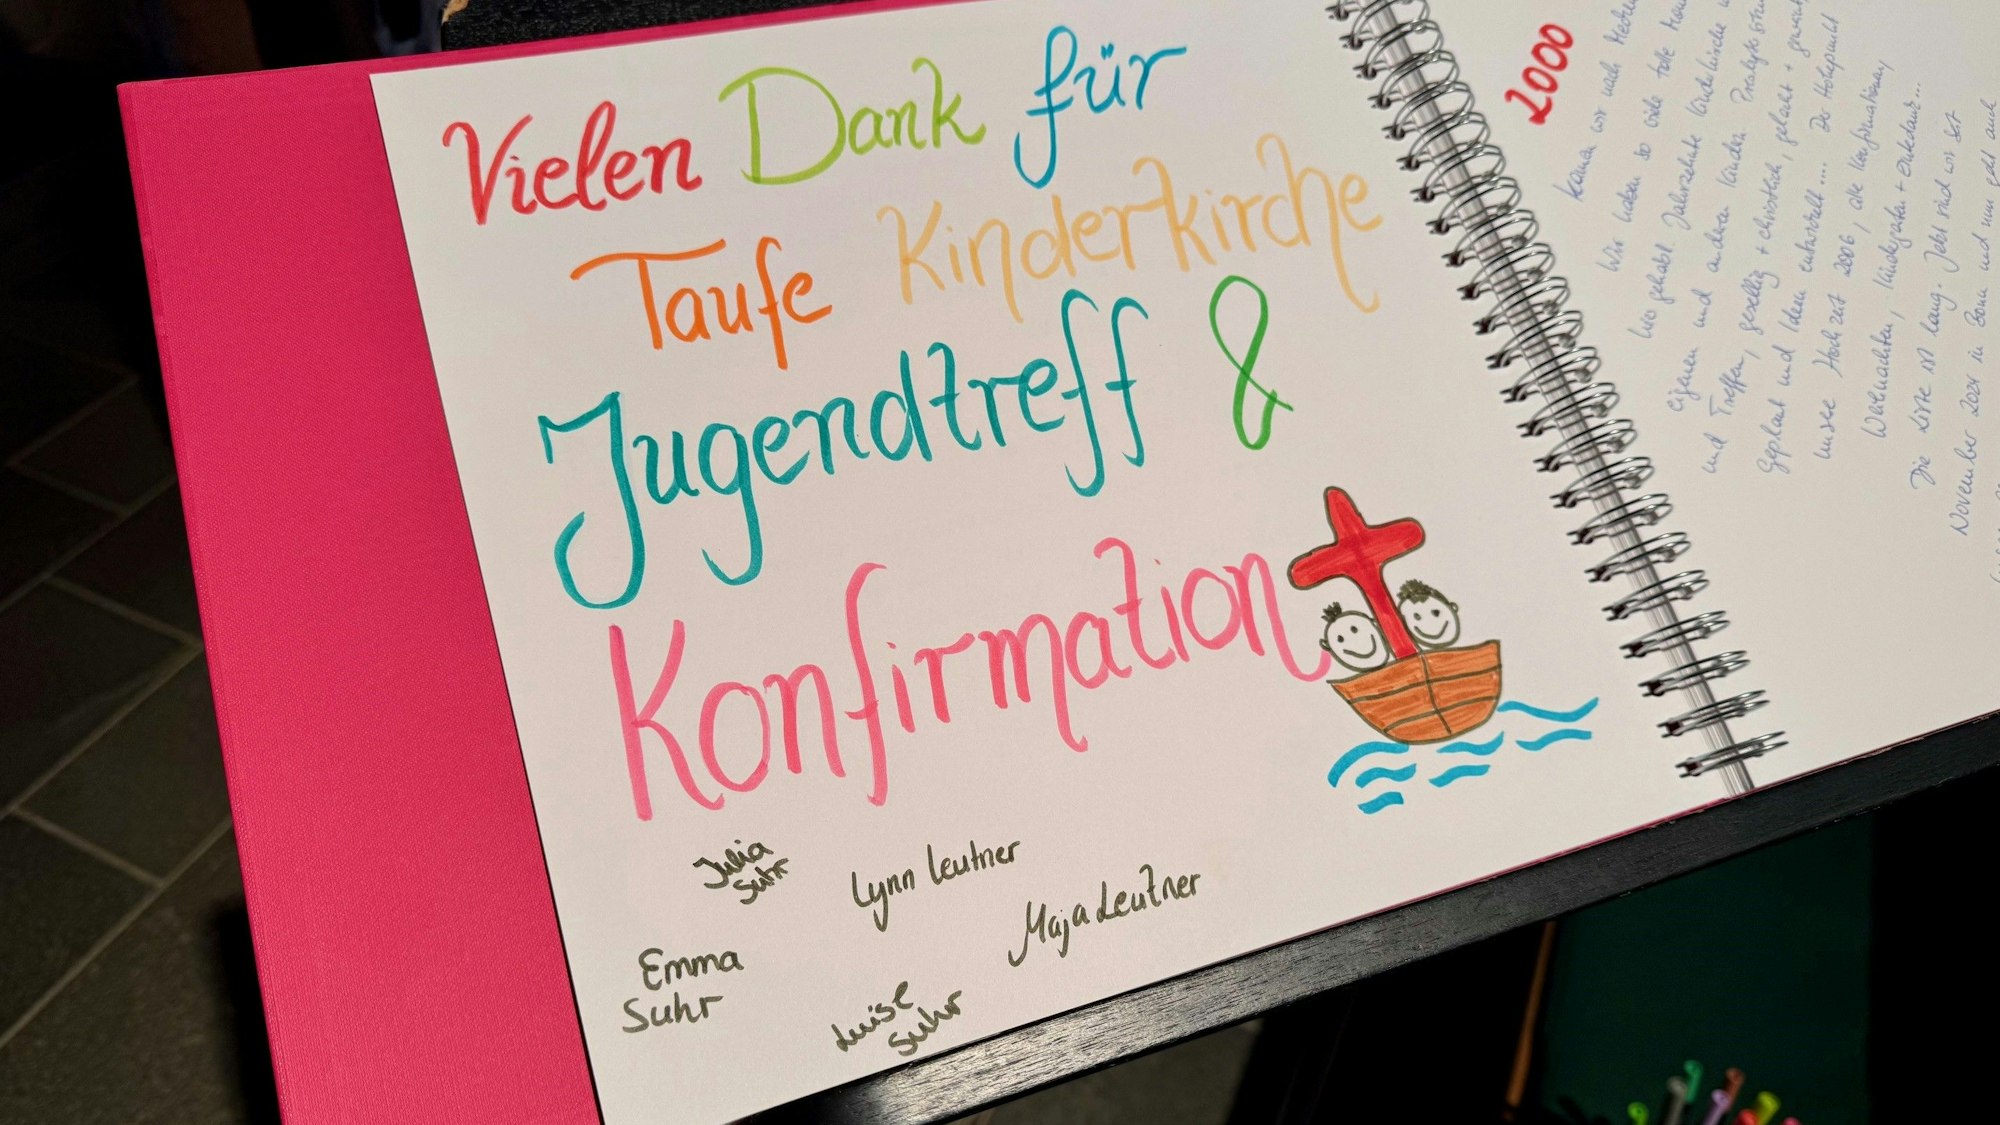 Vielen Dank für
Taufe Kinderkirche
Jugendtreff &
Konfirmation
Julia
Suhr
Lynn Leutner
Maja Leutner
Emma
Suhr
Luise
Suhr
2000
kamen wir nach
Wir haben so viele tolle
gehabt. Jahrzehnte Kinderkirche
eigenen und anderen Kinder
und Treffen, gesellig + christlich, gelacht +
geplant und Ideen entwickelt....
unsere Hochzeit 2006, alle Konfirmationen,
Weihnachten, Kindergarten +
Die Liste ist lang. Jetzt sind wir seit
November 2021 in Bonn und nun geht auch